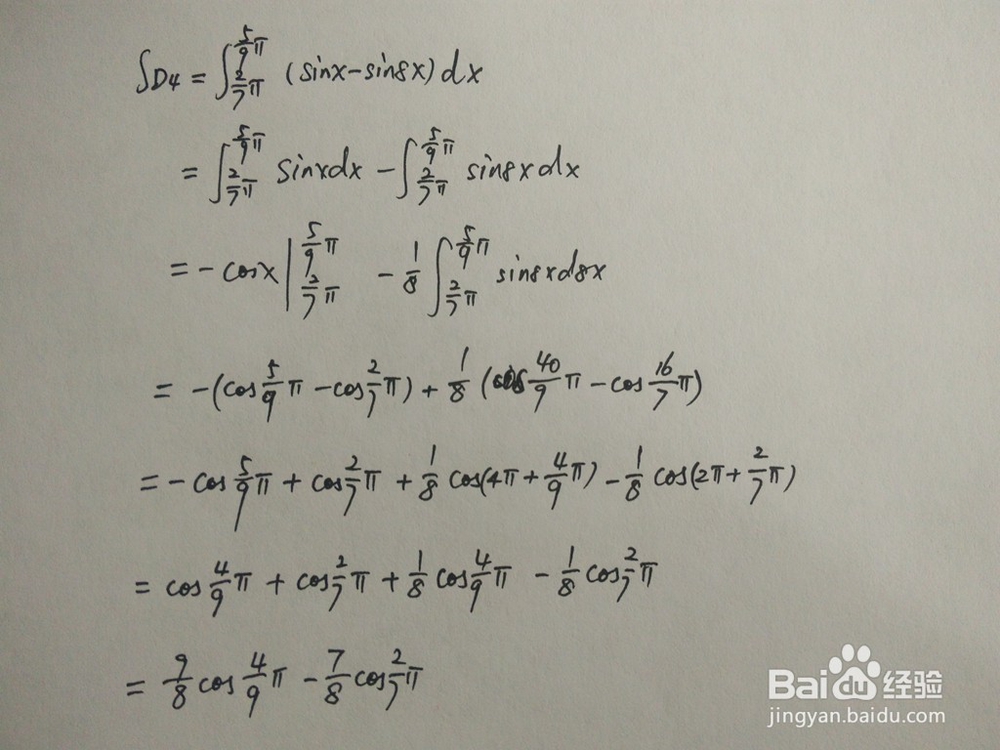 ∫D4 = ∫_{2/7 π}^{5/9 π} (sinx-sin8x) dx
= ∫_{2/7 π}^{5/9 π} sinxdx - ∫_{2/7 π}^{5/9 π} sin8xdx
= - cosx |_{2/7 π}^{5/9 π} - 1/8 ∫_{2/7 π}^{5/9 π} sin8xd8x
= -(cos 5/9 π - cos 2/7 π) + 1/8 (cos 40/9 π - cos 16/7 π)
= - cos 5/9 π + cos 2/7 π + 1/8 cos(4π + 4/9 π) - 1/8 cos(2π + 2/7 π)
= cos 4/9 π + cos 2/7 π + 1/8 cos 4/9 π - 1/8 cos 2/7 π
= 9/8 cos 4/9 π - 7/8 cos 2/7 π
Baidu经验
jingyan.baidu.com